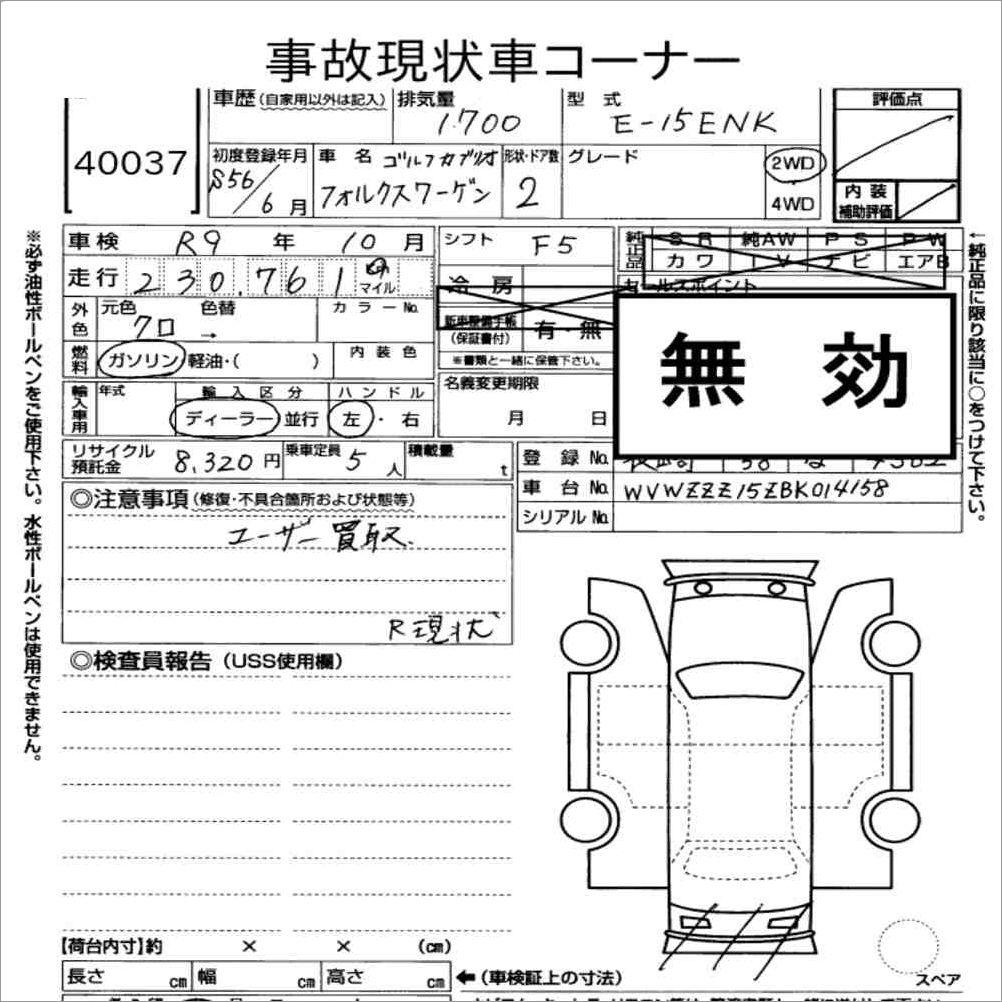 事故現状車コーナー
40037
車歴 (自家用以外は記入) 排気量 1700 型式 E-15ENK 評価点
初度登録年月 S56/6月 車名 ゴルフカブリオ フォルクスワーゲン 形状・ドア数 2 グレード 2WD 4WD 内装補助評価
車検 R9年 10月 シフト F5 純正品 SR 純AW PS PW
走行 230.761 マイル 冷房 カワ TV ナビ エアB
外色 元色 クロ 色替 → カラーNo. 新車整備手帳 (保証書付) 有・無 セールスポイント
無効
燃料 ガソリン 軽油・( ) 内装色 ※書類と一緒に保管下さい。
輸入車用 年式 輸入区分 ディーラー 並行 ハンドル 左・右 名義変更期限 月 日
リサイクル預託金 8,320円 乗車定員 5人 積載量 t 登録No.
車台No. WVWZZZ15ZBK014158
シリアルNo.
◎注意事項 (修復・不具合箇所および状態等)
ユーザー買取.
R現状
◎検査員報告 (USS使用欄)
※必ず油性ボールペンをご使用下さい。水性ボールペンは使用できません。
←純正品に限り該当に○をつけて下さい。
【荷台内寸】約 × × (cm)
長さ cm 幅 cm 高さ cm ←(車検証上の寸法)
スペア